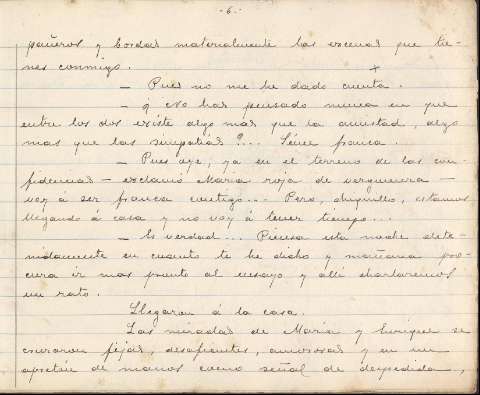 - 6 -
pañeros y bordas materialmente las escenas que tie-
nes conmigo.
— Pues no me he dado cuenta.
— ¿ No has pensado nunca en que
entre los dos existe algo más que la amistad, algo
mas que las simpatias?... Séme franca.
— Pues oye, ya en el terreno de las con-
fidencias — exclamó María roja de vergüenza —
voy á ser franca contigo... Pero, chiquillo, estamos
llegando á casa y no voy á tener tiempo...
— Es verdad... Piensa esta noche dete-
nidamente en cuanto te he dicho y mañana pro-
cura ir mas pronto al ensayo y allí charlaremos
un rato.
Llegaron á la casa.
Las miradas de María y Enrique se
cruzaron fijas, desafiantes, amorosas y en un
apretón de manos como señal de despedida,